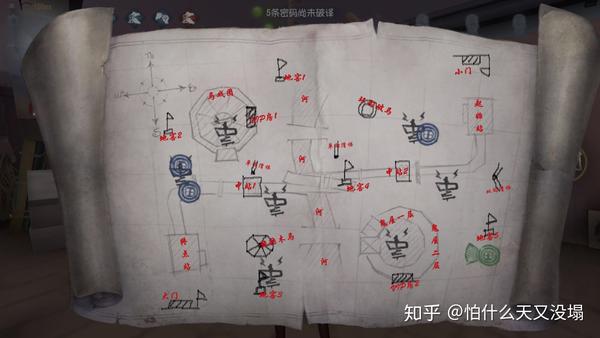 5条密码尚未破译
小门
地窖1
马戏团
河
起始站
地窖2
河
中站1
地窖4
中站2
河
鬼屋一层
鬼屋二层
地窖5
终点站
木马
河
地窖3
大门
知乎 @怕什么天又没塌